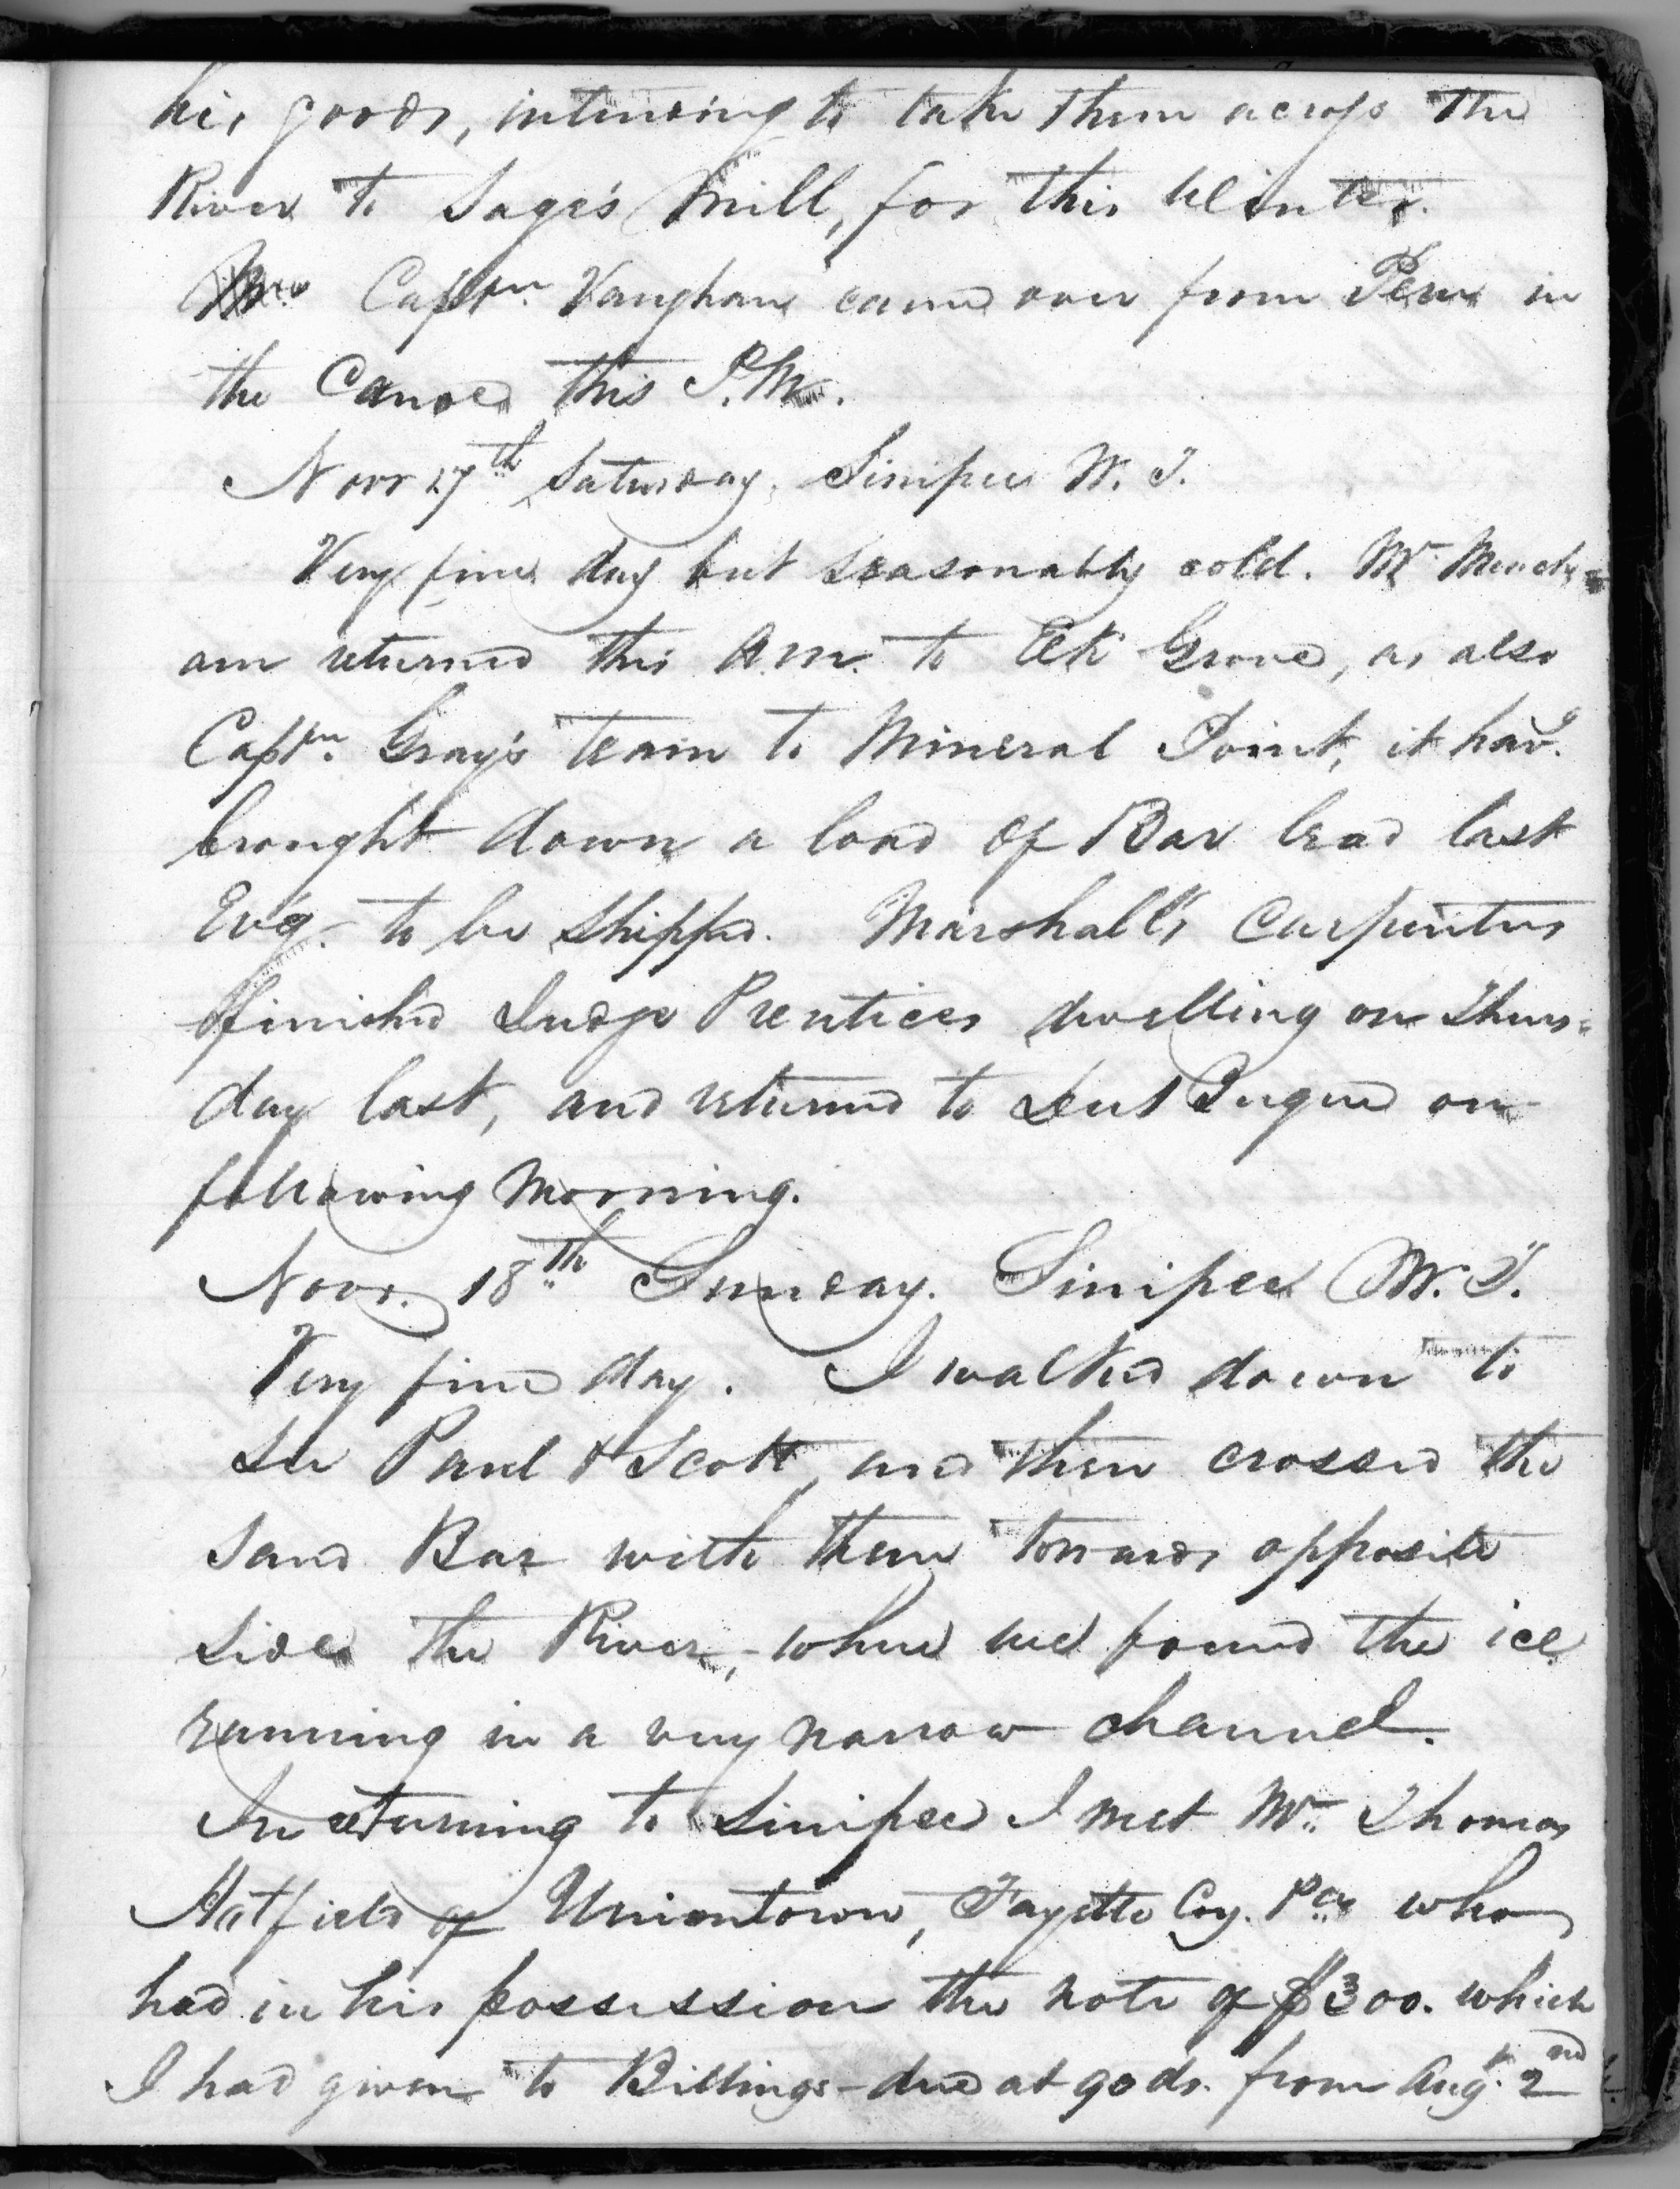 his goods, intending to take them across the
River to Sage's Mill, for this Winter.
Captn. Vaughan came over from Peru in
the Canoe this P.M.
Novr 17th Saturday. Sinipee W. T.
Very fine day but seasonably cold. Mr Meach=
am returned this A.M. to Elk Grove, as also
Captn. Gray's team to Mineral Point, it havg.
brought down a load of Bar lead last
Evg. to be shipped. Marshall's Carpenters
finished Judge Prentices dwelling on Thurs=
day last, and returned to DeuBuque on
following Morning.
Novr. 18th Sunday. Sinipee W. T.
Very fine day. I walked down to
see Paul & Scott, and then crossed the
Sand Bar with them towards opposite
side the River, - where we found the ice
running in a very narrow channel.
In returning to Sinipee I met Mr. Thomas
Hatfield of Uniontown, Fayette Coy. Pa. who
had in his possession the note of $300. which
I had given to Billings - due at 90 ds. from Augt. 2nd